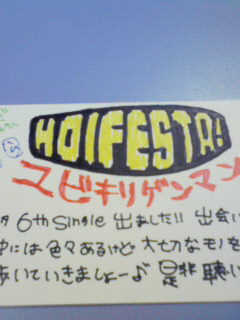 HOIFESTA!
ユビキリゲンマン
6th Single 出ました!! 出会い
中には色々あるけど 大切なモノを
歩いていきましょー♪ 是非 聴い